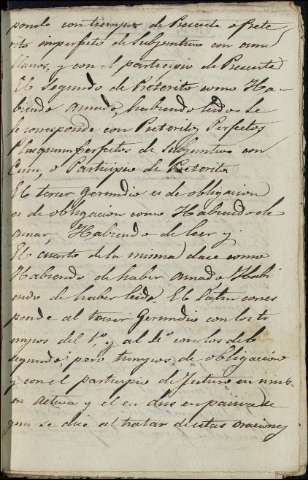 ponde con tiempos de Presente o Prete-
rito imperfecto de Subjuntivo con cum
y con el participio de Presente
El Segundo de Preterito como Ha-
biendo amado, habiendo leido Se
le corresponde con Preterito Perfecto y
Plusquamperfecto de Subjuntivo con
Cum, o Participio de Preterito
El tercer Gerundio es de obligacion
es de obligacion como Habiendo de
amar, Habiendo de leer y
El cuarto de la misma clase como
Habiendo de haber Amado Habi-
endo de haber leido. El Latin corres
ponde al tercer Gerundio con los ti
empos del 1º y al 4º con los del
segundo; pero tiempos de obligacion
y con el participio de futuro en
en Activa y el en dus en pasiva de
que se dice al tratar de estas oraciones